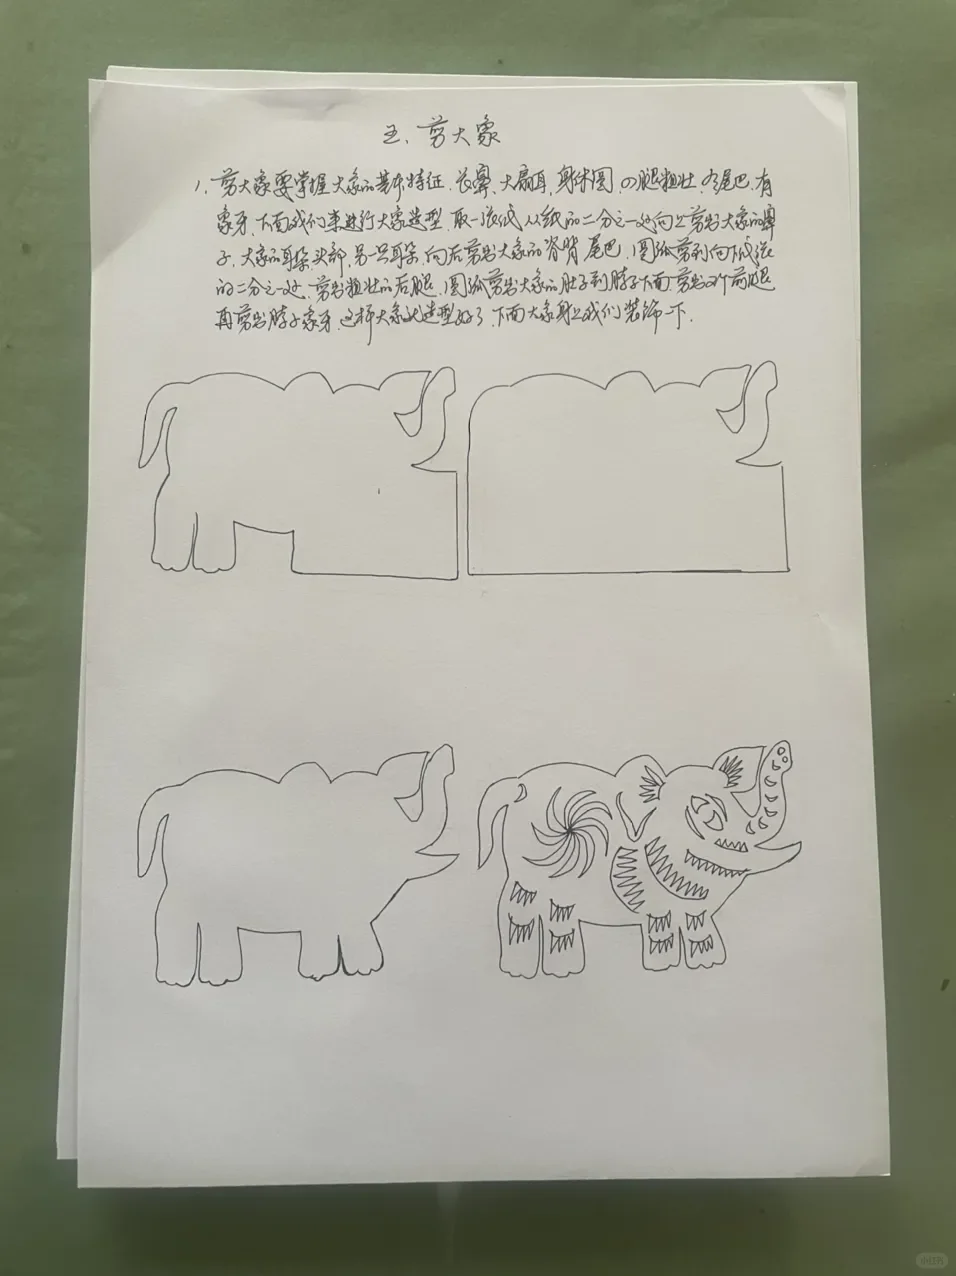 五、剪大象
1、剪大象要掌握大象的基本特征、长鼻、大扇耳、身体圆、四腿粗壮、有尾巴、有
象牙、下面我们来进行大象造型、取一张纸、从纸的二分之一处向上剪出大象的鼻
子、大象的耳朵、头部、另一只耳朵、向后剪出大象的脊背、尾巴、圆弧剪到向下纸张
的二分之一处、剪出粗壮的后腿、圆弧剪出大象的肚子到脖子下面剪出2个前腿
再剪出脖子象牙、这样大象的造型好了、下面大象身上我们装饰一下.
小红书